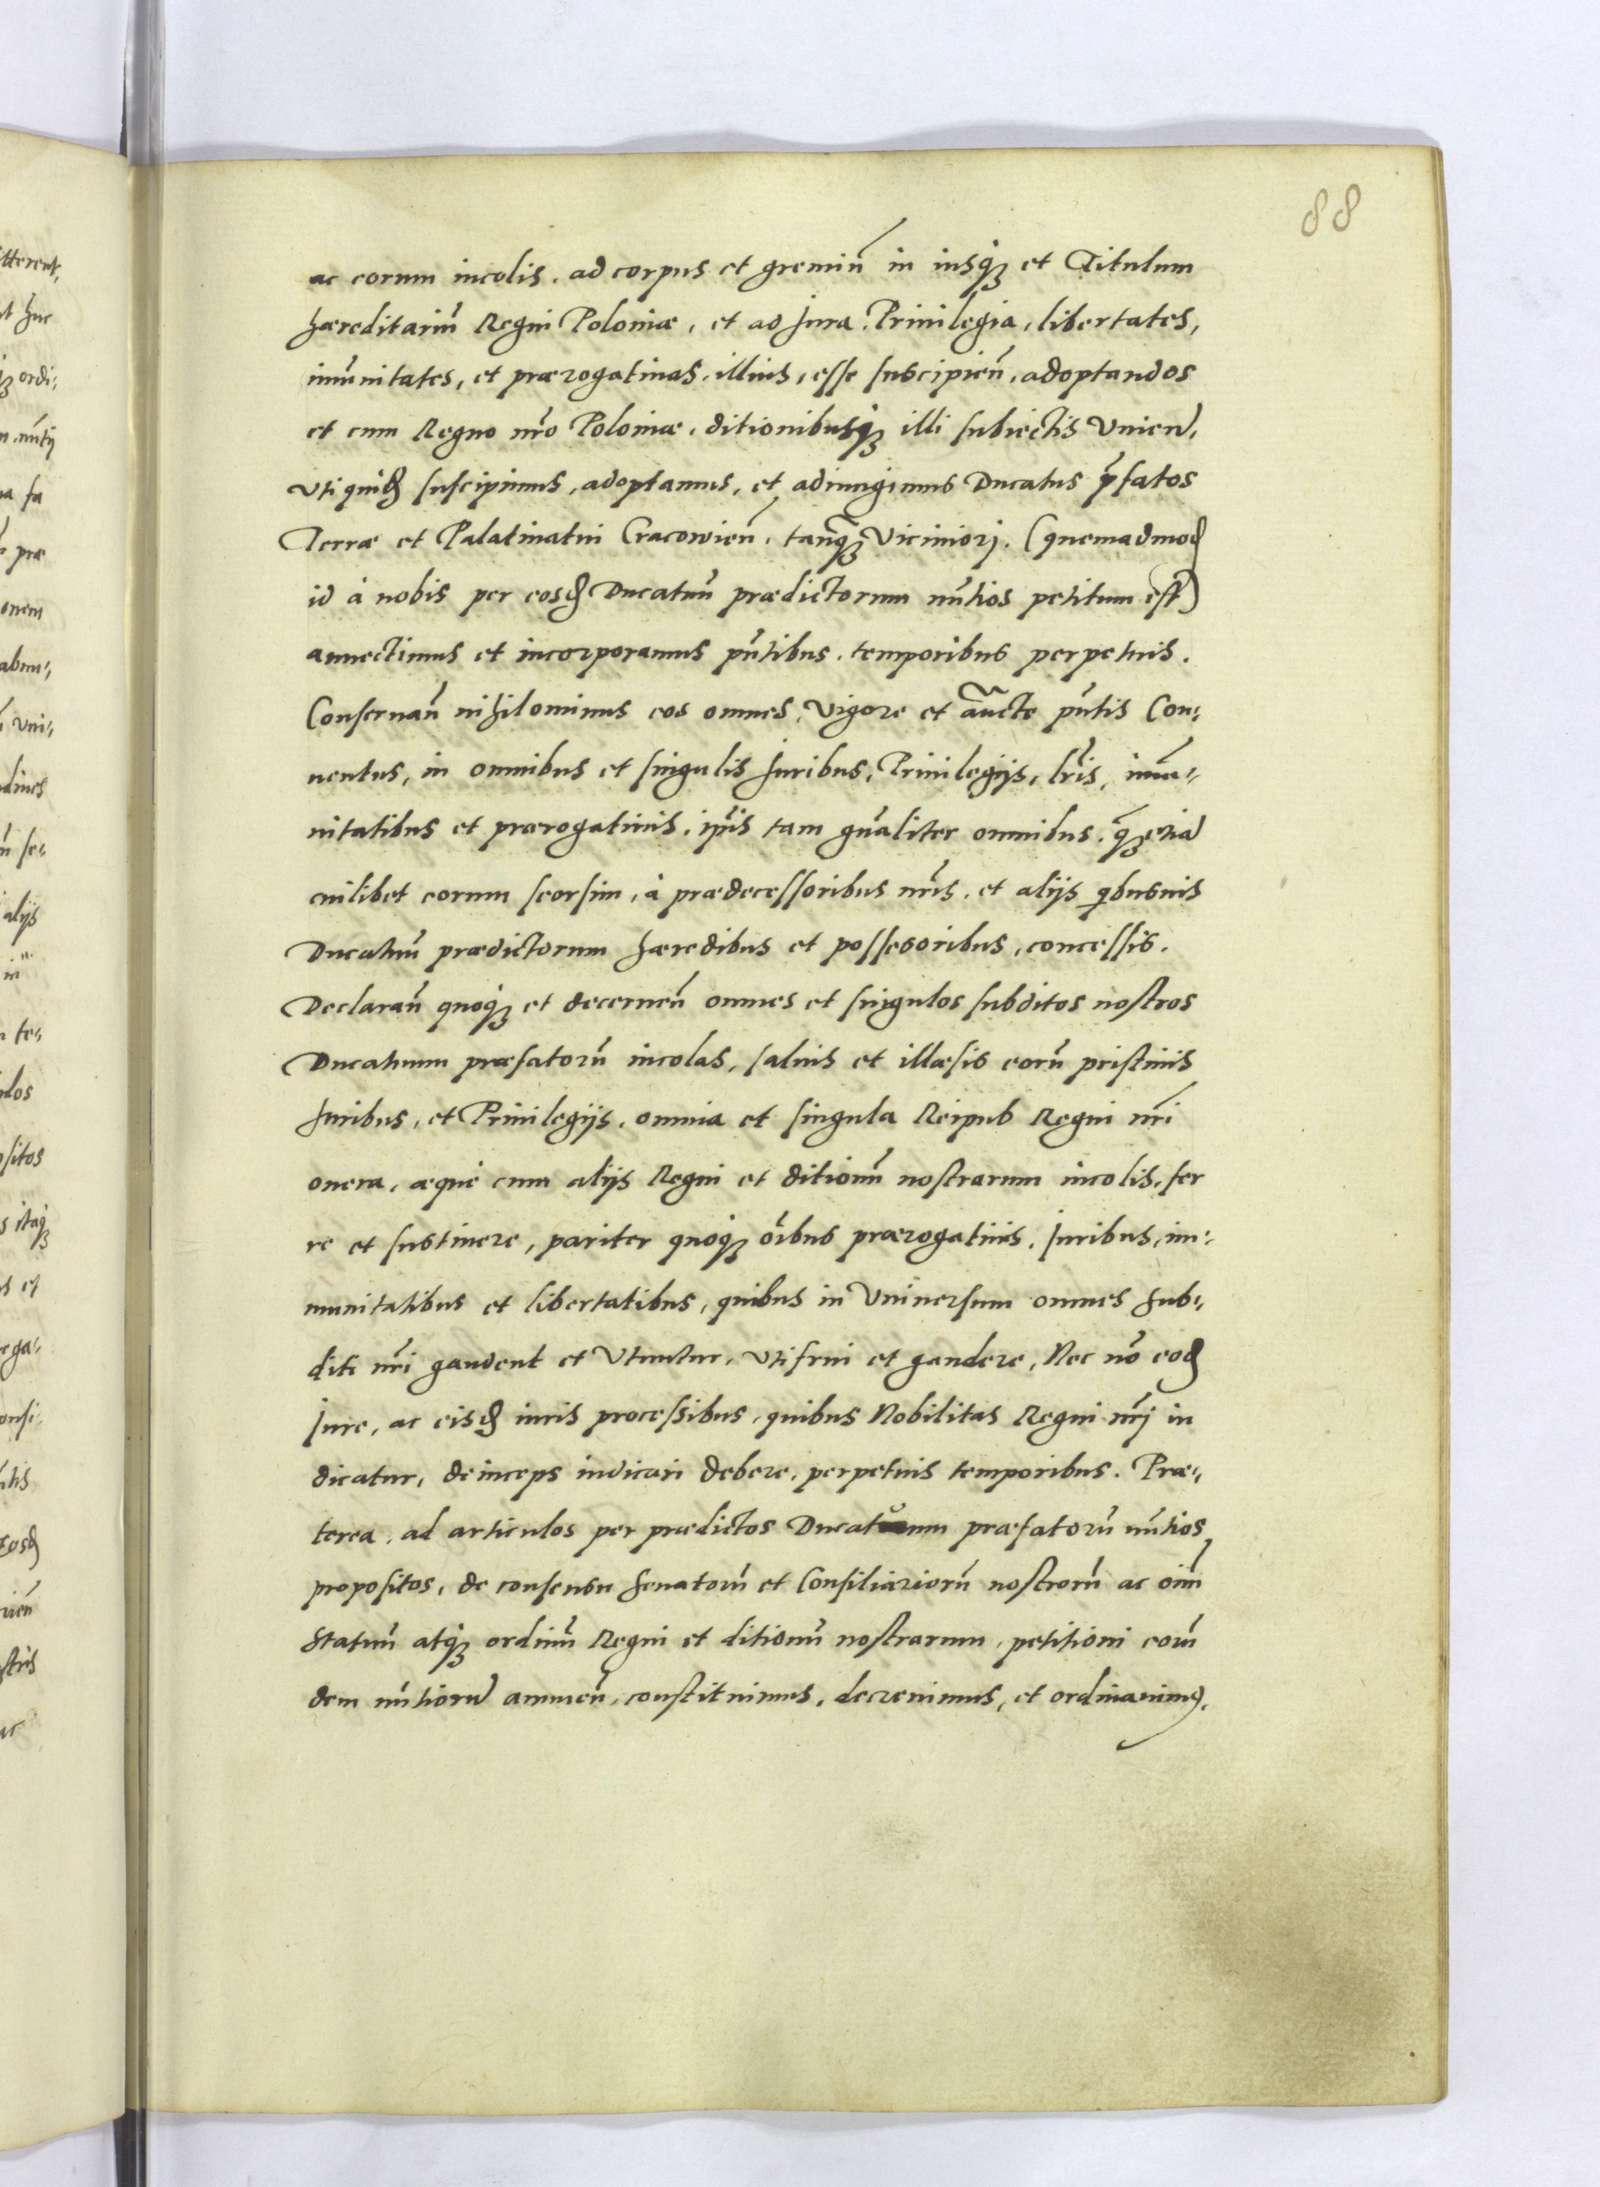 88
ac eorum incolis, ad corpus et gremiũ in iusq̃ et Titulum
hæreditariũ Regni Poloniæ, et ad Jura, Priuilegia, libertates,
imũnitates, et prærogatiuas, illius, esse suscipień, adoptandos
et cum Regno nr̃o Poloniæ, ditionibusq̃ illi subiectis vnień,
vti quid̃ suscipimus, adoptamus, et adiungimus Ducatus p̃fatos
Terræ et Palatinatui Cracowień, tanq̃ Viciniori. (quemadmod̃
id à nobis per eosd̃ Ducatuũ prædictorum nũtios petitum est)
annectimus et incorporamus pñtibus, temporibus perpetuis.
Conseruañ nihilominus eos omnes, vigore et aũcte pñtis Con:
uentus, in omnibus et singulis Juribus, Priuilegijs, lr̃is, imũ:
nitatibus et prærogatiuis, ip̃is tam gñaliter omnibus, q̃ etiã
cuilibet eorum seorsim, à prædecessoribus nr̃is, et alijs q̃busuis
Ducatuũ prædictorum hæredibus et possesoribus, concessis.
Declarañ quoq̃ et decerneñ omnes et singulos subditos nostros
Ducatuum præfatorũ incolas, saluis et illæsis eorũ pristinis
Juribus, et Priuilegijs, omnia et singula Reipub Regni nr̃i
onera, æque cum alijs Regni et ditionũ nostrarum incolis, fer
re et sustinere, pariter quoq̃ oĩbus prærogatiuis, Juribus, im:
munitatibus et libertatibus, quibus in Vniuersum omnes Sub:
diti nr̃i gaudent et Vtuntur, vti frui et gaudere, Nec nõ eod̃
Jure, ac eisd̃ iuris processibus, quibus Nobilitas Regni nr̃j iu
dicatur, deinceps iudicari debere, perpetuis temporibus. Præ:
terea, ad articulos per prædictos Ducatuum præfatorũ nũtios
propositos, de consensu Senatorũ et Consiliariorũ nostrorũ ac oĩm
Statuũ atq̃ ordinũ Regni et ditionũ nostrarum, petitioni eorũ
dem nũtiorũ annueñ, constituimus, decreuimus, et ordinauimus.